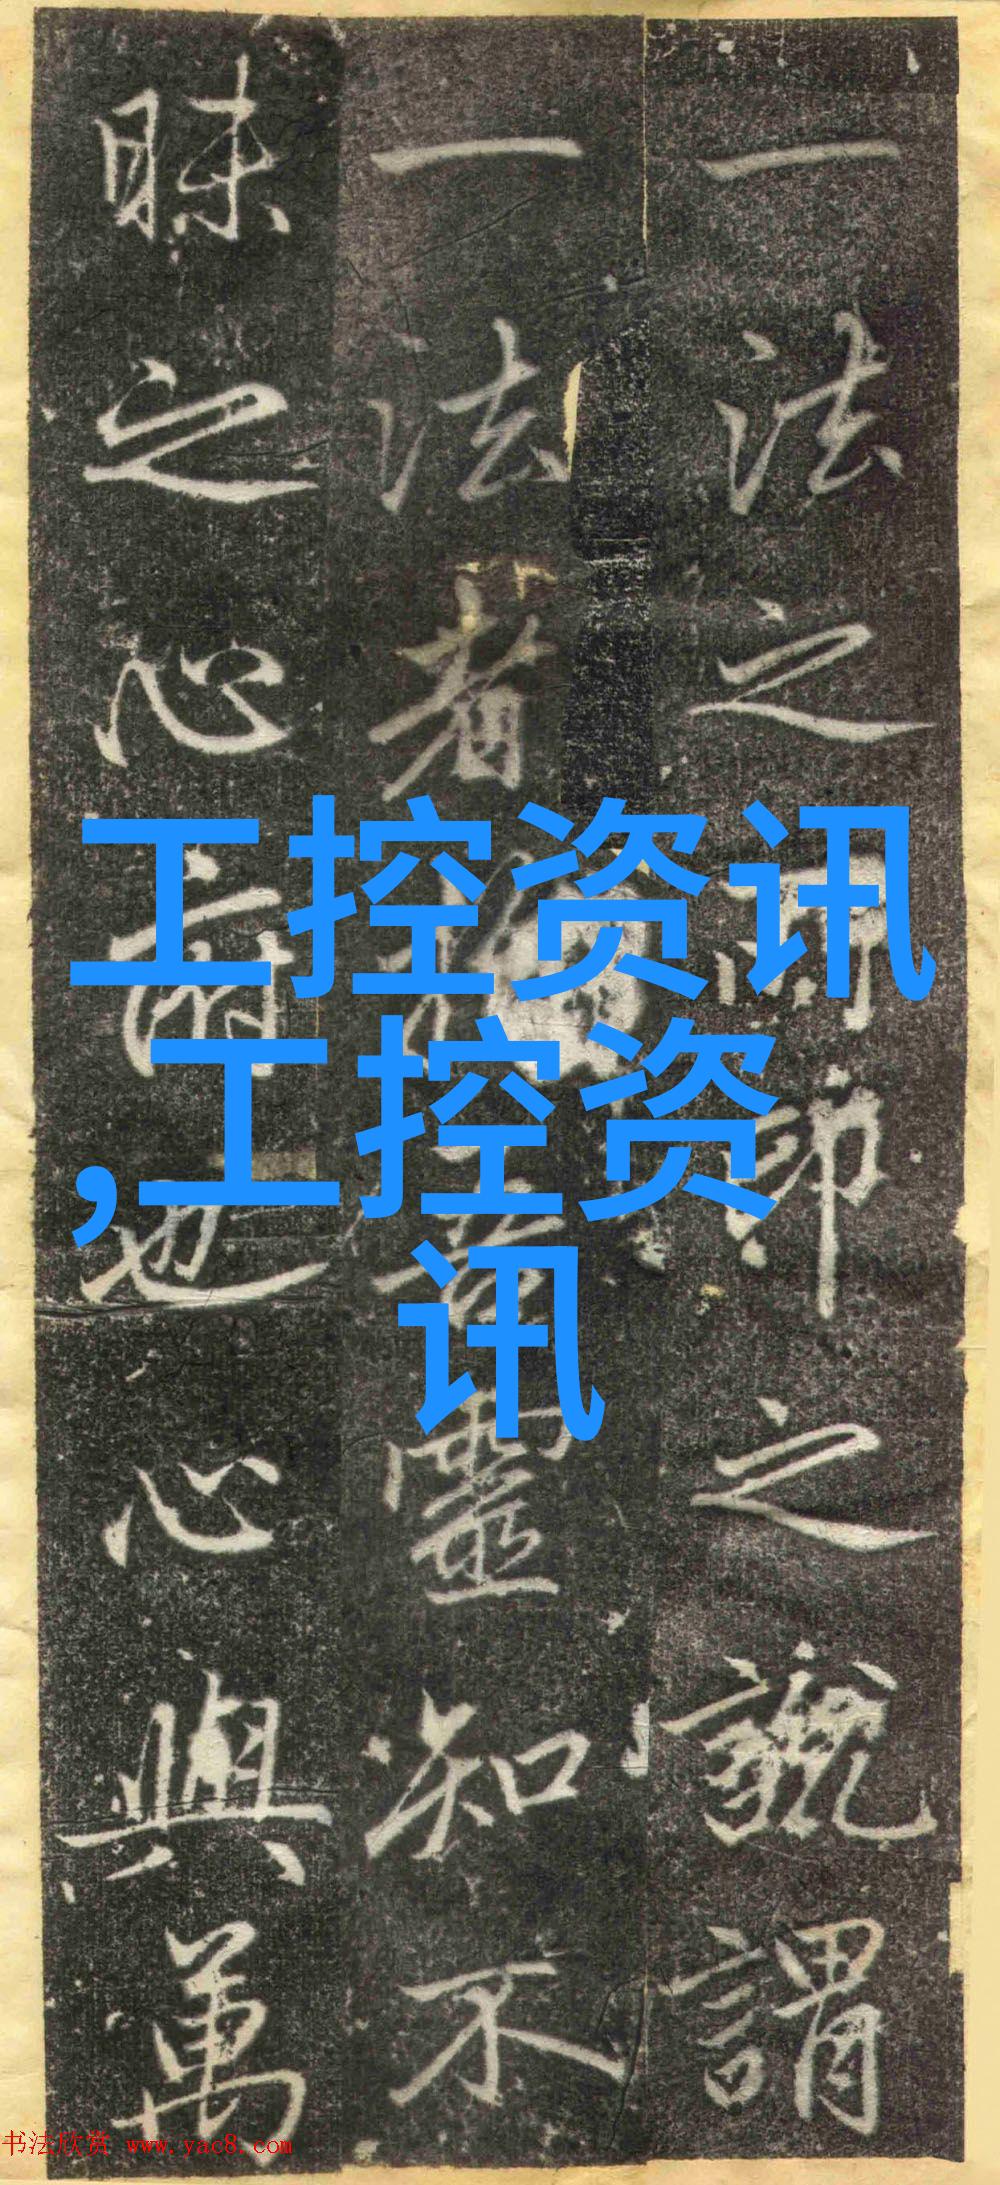 一法之印之號謂
一法者靈知不
昧之心也心與萬
工控资讯
,工控资
讯
书法欣赏 www.yac8.com